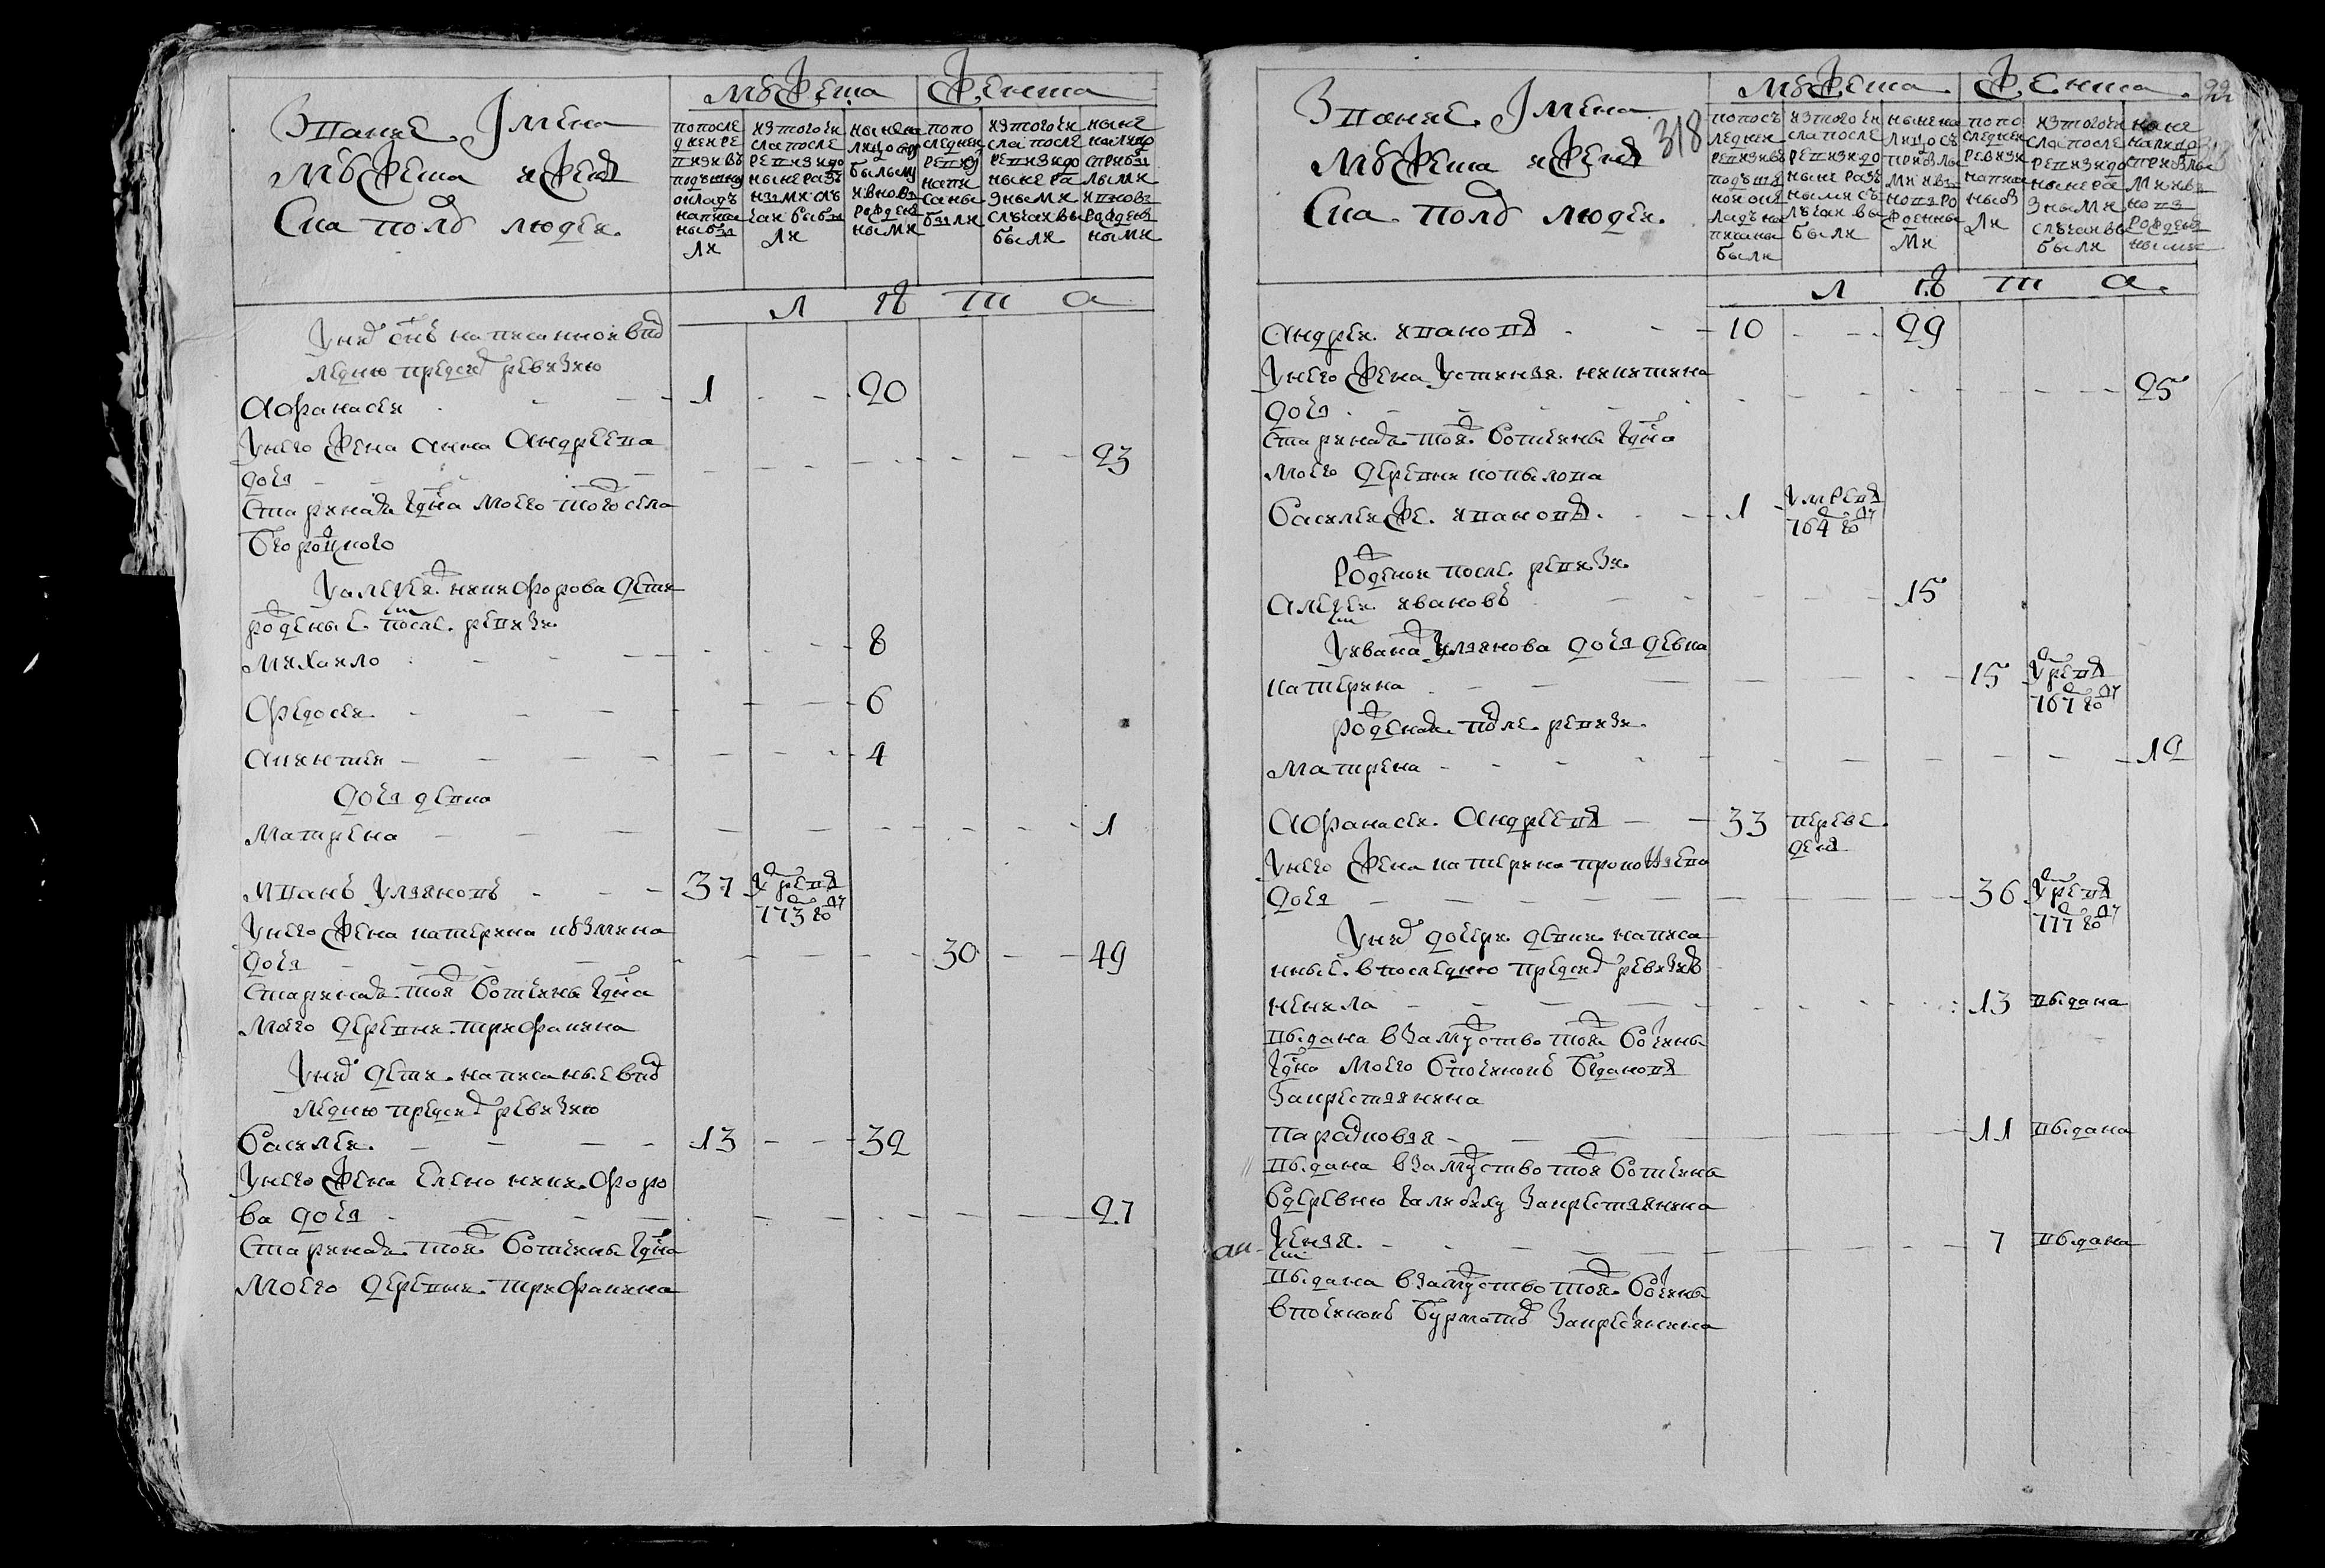 Звание Имена
Мужеска и женс
ка полу людей.
Мужеска
Женска
по после
дней ре
визи въ
подушно
окладъ
написа
ны бы
ли
из того чи
сла после
ревизи до
ныне раз
ными слу
чаи выбы
ли
ныне на
лицо
былыми
и вновь
рожден
ными
по по
следней
ревизи
напи
саны
были
из того чи
сла после
ревизи до
ныне ра
зными
случаи вы
были
ныне
налицо
с прибы
лыми
и вновь
рожден
ными
л ѣ т а
У них сынъ написанной в по
следнюю пред сим ревизию
Афанасей - 1 - 20
У него жена Анна Андреева
дочь - 23
старинная гдна моего того села
Бгородцкого
У Алексея Никифорова дети
рожденые после ревизи
Михайло - 8
Федосей - 6
Никитей - 4
дочь девка
Матрена - 1
Иванъ Ульяновъ - 37 умре в 773 году
У него жена Катерина Кузмина
дочь - 30 - 49
старинная той вотчины гдна
моего деревни Трифанина
У них дети написаные в по
следнюю пред сим ревизию
Василей - 13 - 32
У него жена Елена Никифоро
ва дочь - 27
старинная той вотчины гдна
моего деревни Трифанина
Звание Имена
Мужеска и женс
ка полу людей.
318
Мужеска
Женска
22
по пос
ледней
ревизи в
подуш
ной ок
ладъ на
писаны
были
из того чи
сла после
ревизи до
ныне раз
ными с
лучаи вы
были
ныне на
лицо съ
прибылы
ми и в
новь ро
жденны
ми
по по
следней
ревизи
написа
ны бы
ли
из того чи
сла после
ревизи до
ныне ра
зными
случаи вы
были
ныне
налицо
с прибылы
ми и в
новь
рожден
ными
л ѣ т а.
Андрей Ивановъ - 10 - 29
У него жена Устинья Никитина
дочь - 25
старинная той вотчины гдна
моего деревни Копылова
Василей же Ивановъ - 1 умре в 764 году
Рожденой после ревизи
Алексей Ивановъ - 15
У Ивана Ульянова дочь девка
Катерина - 15 умре в 767 году
рожденая после ревизи
Матрена - 12
Афанасей Андреевъ - 33 переве
ден
У него жена Катерина Прокофьева
дочь - 36 умре в 777 году
У них дочери девки написа
нные в последнюю пред сим ревизию
Ненила - 13 выдана
выдана в замужство той вотчины
гдна моего
за крестьянина
Парасковья - 11 выдана
выдана в замужство той вотчины
в деревню Галибиху за крестьянина
Ксенья - 7 выдана
выдана в замужство той вотчины
в починокъ за крестьянина